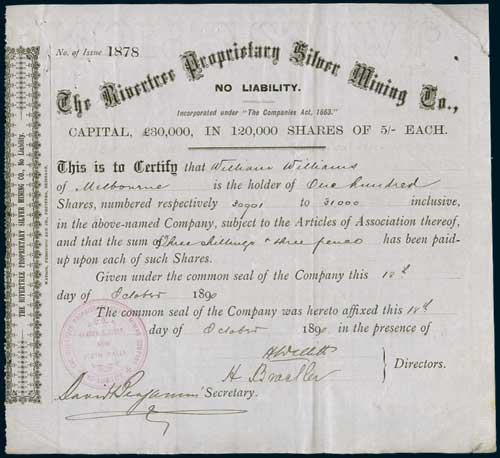 No. of Issue 1878
The Rivertree Proprietary Silver Mining Co.,
NO LIABILITY.
Incorporated under "The Companies Act, 1863."
CAPITAL, £30,000, IN 120,000 SHARES OF 5/- EACH.
This is to Certify that William Williams
of Melbourne is the holder of One hundred
Shares, numbered respectively 30901 to 31000 inclusive,
in the above-named Company, subject to the Articles of Association thereof,
and that the sum of Three shillings & three pence has been paid-
up upon each of such Shares.
Given under the common seal of the Company this 18th
day of October 1890
The common seal of the Company was hereto affixed this 18th
day of October 1890 in the presence of
Directors.
David Benjamin Secretary.
THE RIVERTREE PROPRIETARY SILVER MINING CO., No Liability.